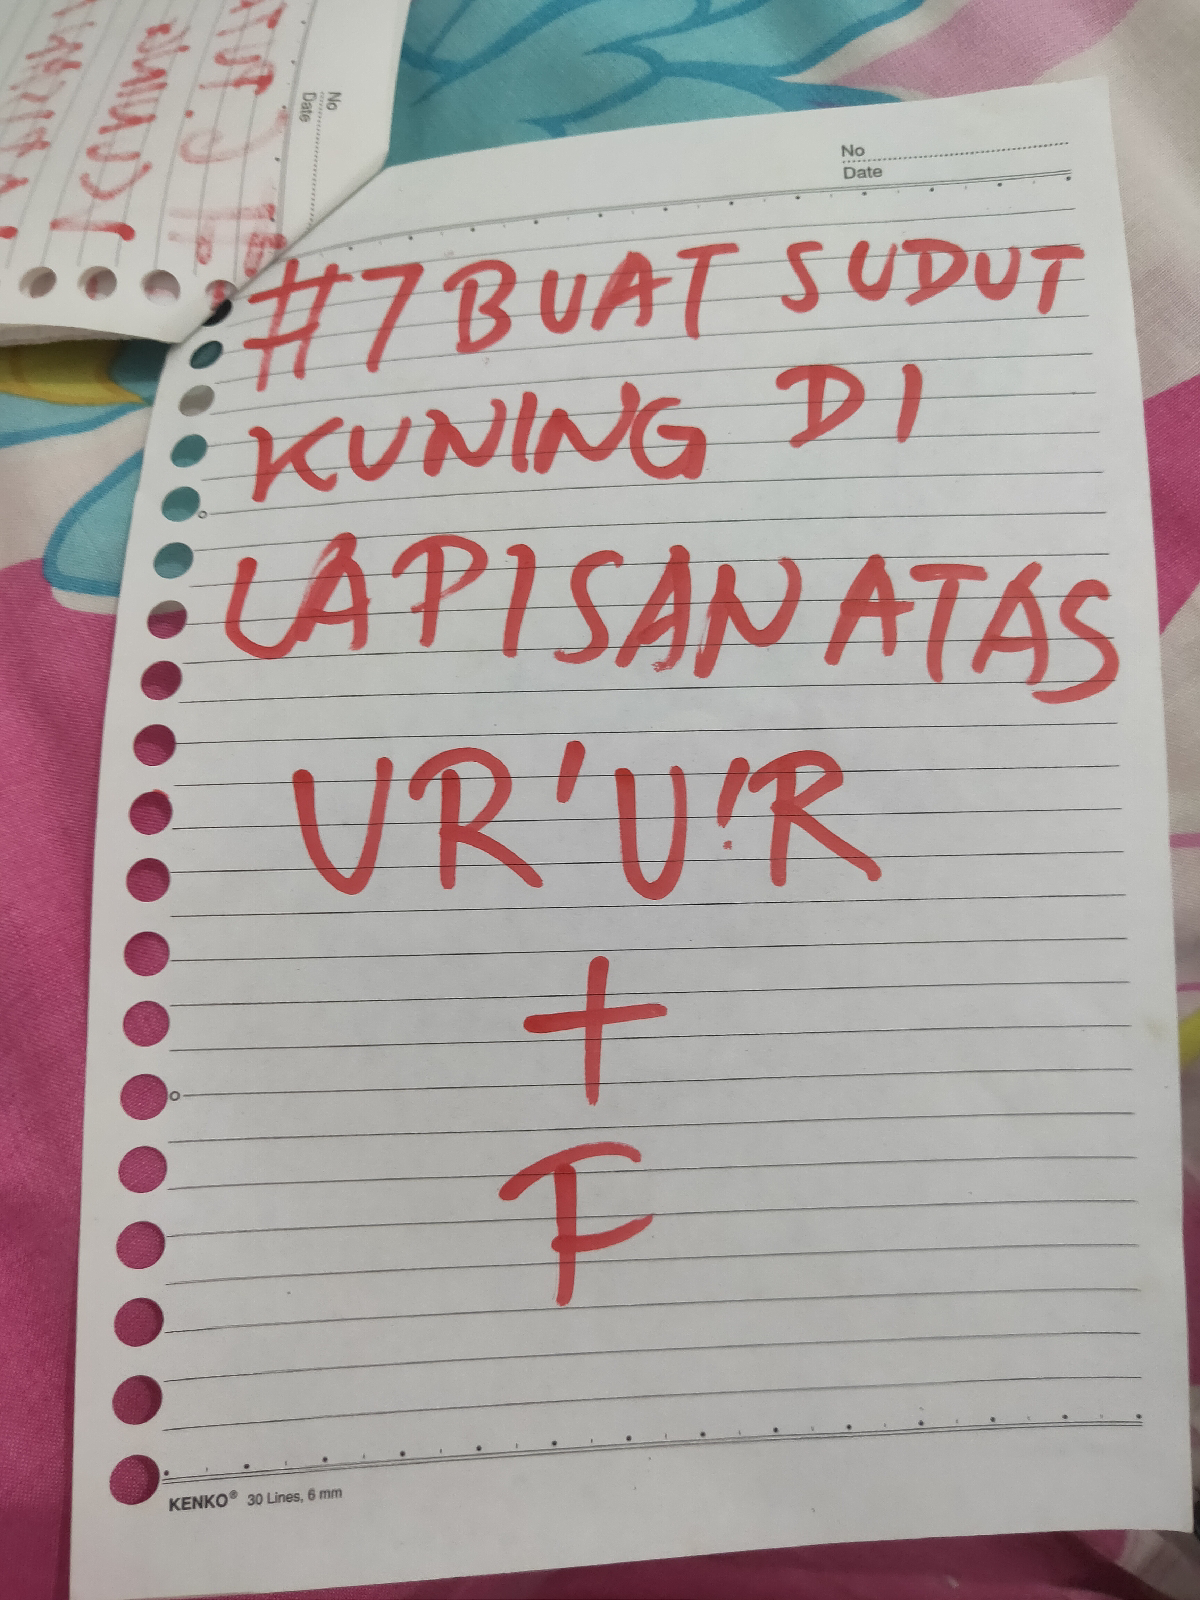 No
Date
#7 BUAT SUDUT
KUNING DI
LAPISAN ATAS
UR'U'R
+
F
KENKO® 30 Lines, 6 mm
No
Date